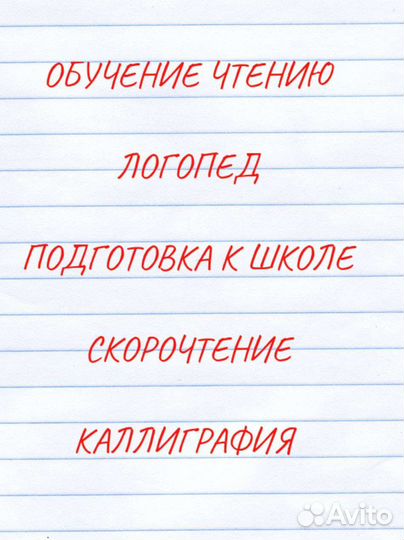 ОБУЧЕНИЕ ЧТЕНИЮ
ЛОГОПЕД
ПОДГОТОВКА К ШКОЛЕ
СКОРОЧТЕНИЕ
КАЛЛИГРАФИЯ
Avito